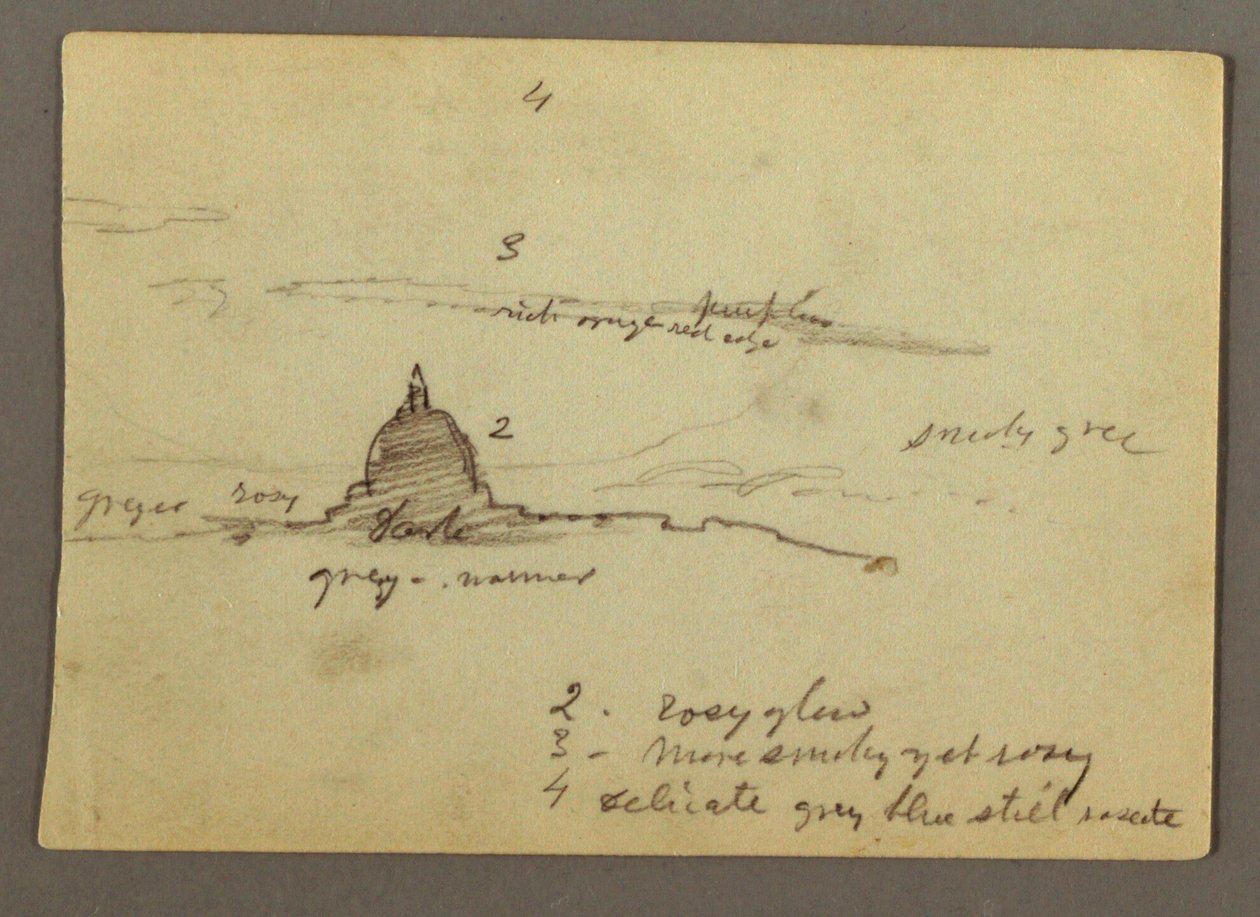 4
3
purple
rich orange red edge
2
smoky gree
greyer rosy
Dark
grey - . warmer
2 . rosy glow
3 - More smoky yet rosy
4 delicate grey blue still roseate